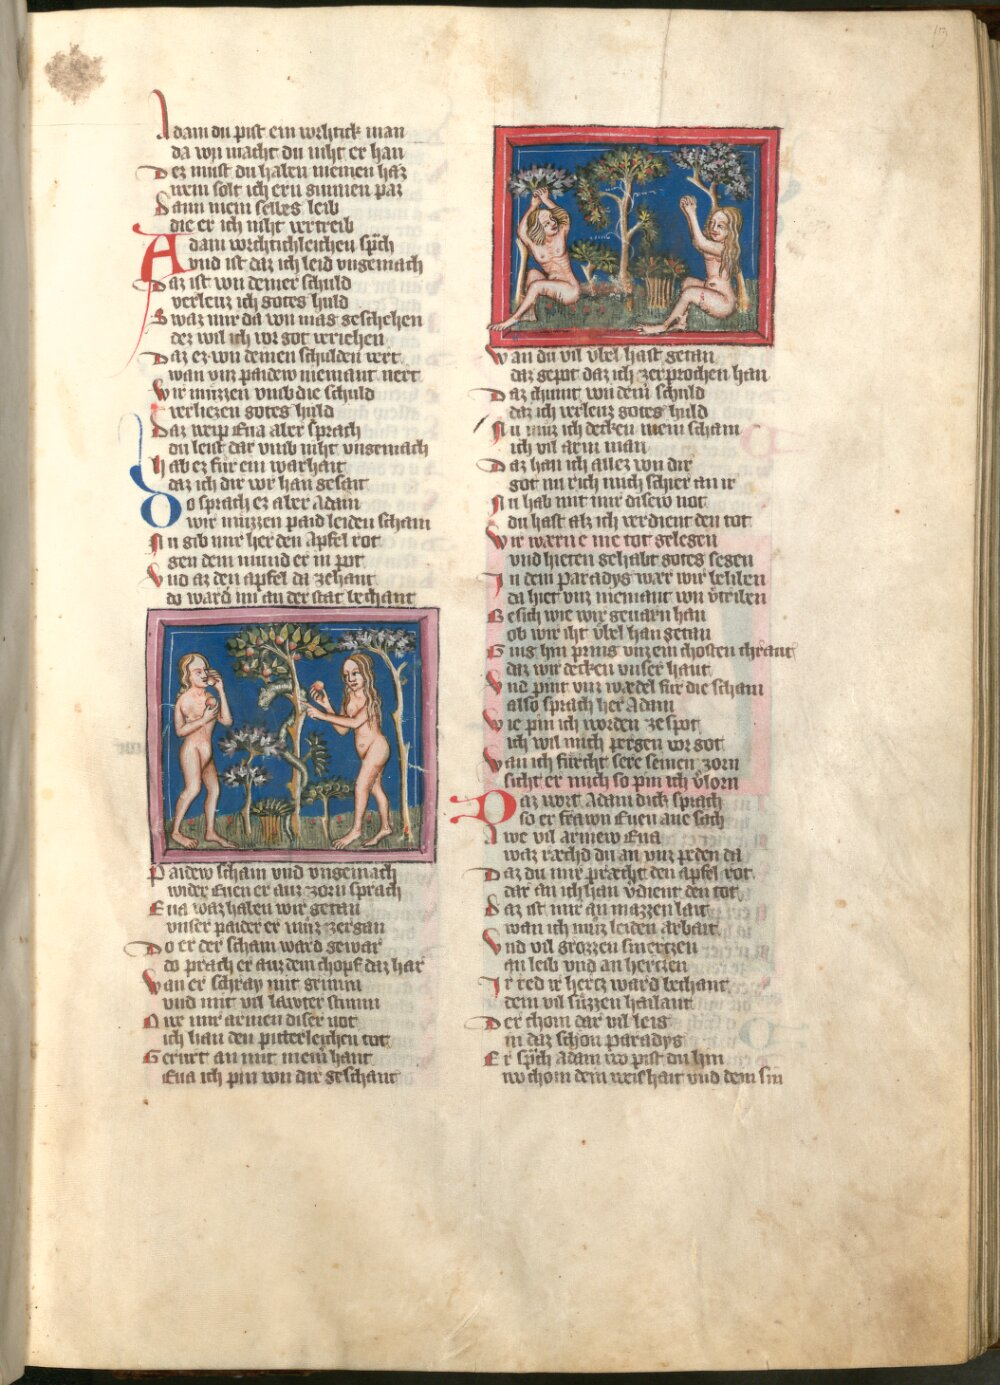 Adam du pist ein wehtick man
da von macht du niht er han
Dez must du haben meinen haz
wem solt ich ern gunnen paz
Dann mein selbes leib
die er ich niht vertreib
Adam vorchtichleichen sp̄ch
vnd ist daz ich leid vngemach
Daz ist von deiner schuld
verleuz ich gotes huld
Swaz mir da von mag geschehen
dez wil ich vor got veriehen
Daz ez von deinen schulden vert
wan vnz paidew niemant nert
Wir müzzen vmb die schuld
verliezen gotes huld
Daz weip Eua aber sprach
du leist dar vmb niht vngemach
Hab ez für ein warhait
daz ich dir vor han gesait
Do sprach ez aber Adam
wir müzzen paid leiden scham
Nu gib mir her den apfel rot
gen dem mund er in pot
Vnd az den apfel da zehant
do ward im an der stat bechant
Paidew scham vnd vngemach
wider Euen er auz zorn sprach
Eua waz haben wir getan
vnser paider er müz zergan
Do er der scham ward gewar
do prach er auz dem chopf daz har
Wan er schray mit grimm
vnd mit vil lawter stimm
Owe mir armen diser not
ich han den pitterleichen tot
Gerurt an mit meinr hant
Eua ich pin von dir geschant
13
Wan du vil vbel hast getan
daz gepot daz ich zerprochen han
Daz chumt von deinr schuld
daz ich verleuz gotes huld
Nu müz ich decken mein scham
ich vil arm man
Daz han ich allez von dir
got nu rich mich schier an ir
Nu hab mit mir disew not
du hast als ich verdient den tot
Wir wærn e nie tot gelegen
vnd hieten gehabt gotes segen
In dem paradys wær wir beliben
da hiet vnz niemant von v̓triben
Besich wie wir geuarn han
ob wir iht vbel han getan
Ging hin pring vnz ein chosten chraut
daz wir decken vnser haut
Vnd pint vnz wædel für die scham
also sprach her Adam
Wie pin ich worden ze spot
ich wil mich pergen vor got
Wan ich fürcht sere seinen zorn
sicht er mich so pin ich v̓lorn
Daz wort Adam dick sprach
so er frawn Euen ane sach
Awe vil armew Eua
waz ræchd du an vnz peden da
Daz du mir præcht den apfel rot
dar an ich han v̓dient den tot
Daz ist mir an mazzen lait
wan ich müz leiden arbait
Vnd vil grozzen smertzen
an leib vnd an hertzen
Ir red ir hertz ward bechant
dem vil süzzen hailant
Der chom dar vil leis
in daz schon paradys
Er sp̄ch Adam wo pist du hin
wo chom dein weishait vnd dein sin